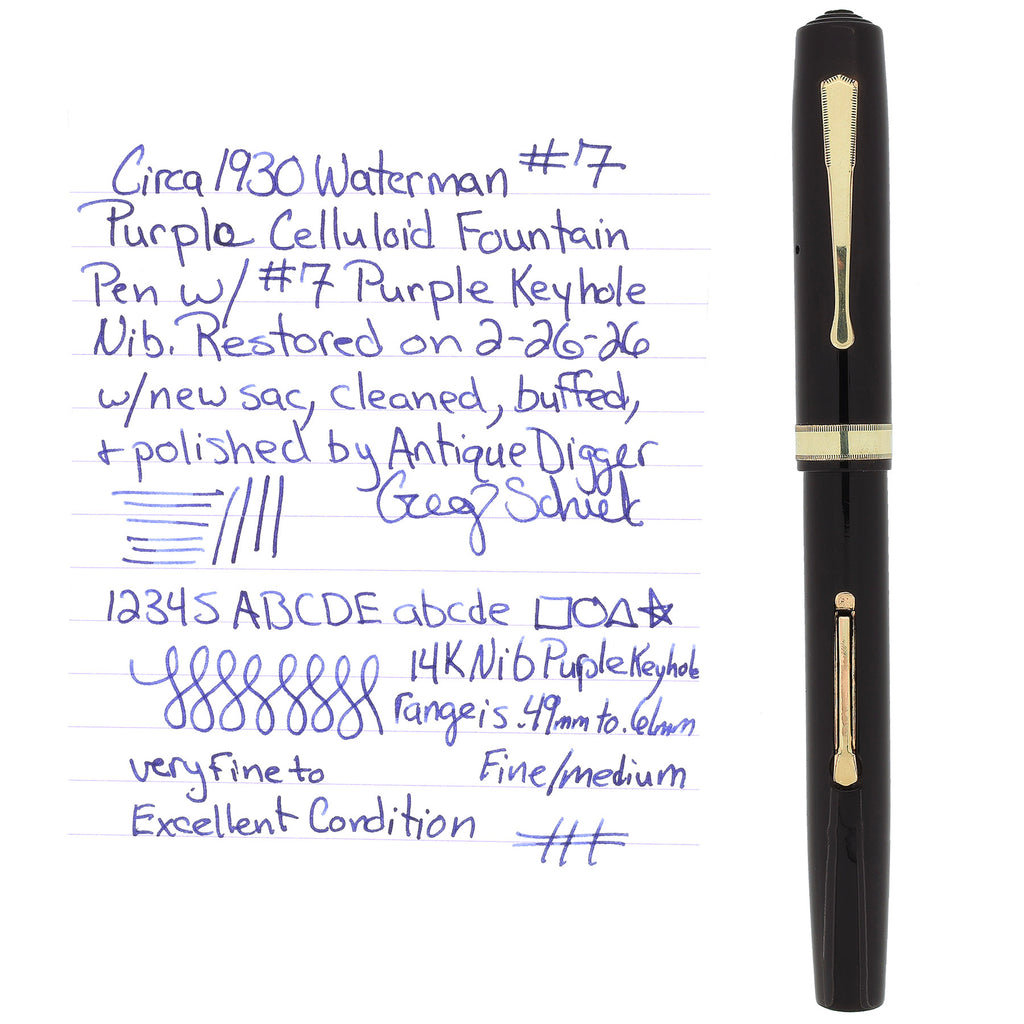 Circa 1930 Waterman #7
Purple Celluloid Fountain
Pen w/ #7 Purple Keyhole
Nib. Restored on 2-26-26
w/new sac, cleaned, buffed,
+ polished by Antique Digger
Greg Schiek
12345 ABCDE abcde
14K Nib Purple Keyhole
range is .49mm to .61mm
very fine to
Fine/medium
Excellent Condition